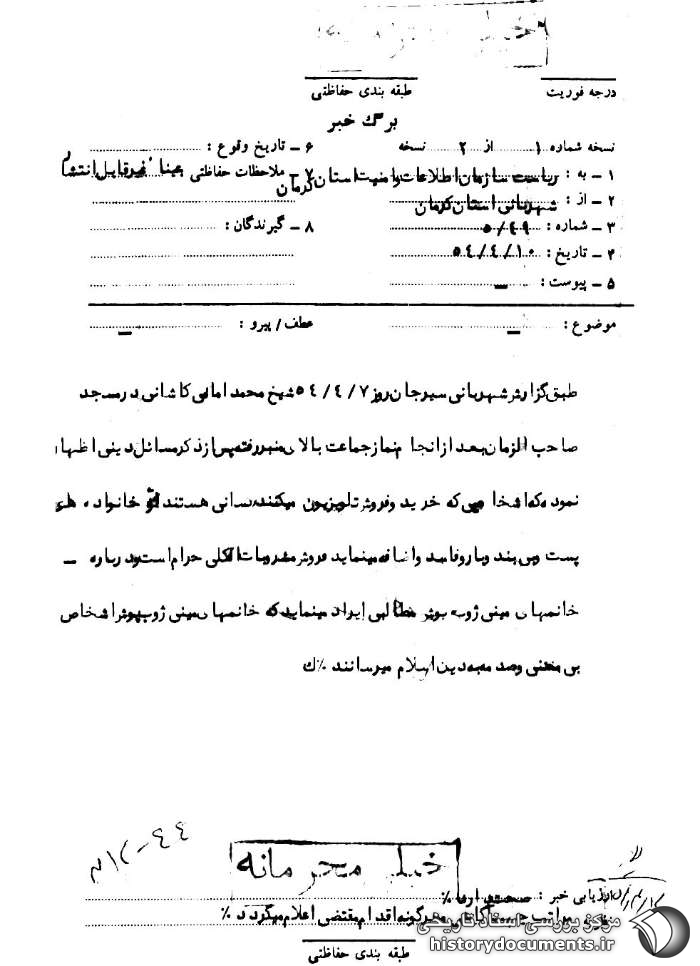 خیلی محرمانه
درجه فوریت
طبقه بندی حفاظتی
برگ خبر
نسخه شماره ۱ از ۲ نسخه
۱ ـ به : ریاست سازمان اطلاعات و امنیت استان کرمان
۲ ـ از : شهربانی استان کرمان
۳ ـ شماره : ۵/۴۹
۴ ـ تاریخ : ۵۴/۴/۱۰
۵ ـ پیوست : ـ
۶ ـ تاریخ وقوع :
۷ ـ ملاحظات حفاظتی : عینا" غیرقابل انتشار
۸ ـ گیرندگان :
موضوع : ـ
عطف / پیرو : ـ
طبق گزارش شهربانی سیرجان روز ۵۴/۴/۷ شیخ محمد امانی کاشانی در مسجد
صاحب الزمان بعد از انجام نماز جماعت بالای منبر رفته پس از ذکر مسائل دینی اظهار
نموده که اشخاصی که خرید و فروش تلویزیون میکنند کسانی هستند خانواده
پست و بی بند و بار و فاسد و اضافه مینماید فروش مشروبات الکلی حرام است و درباره ـ
خانمهای مینی ژوپ پوش مطالبی ایراد مینماید که خانمهای مینی ژوپ پوش اشخاص
بی معنی و صدمه به دین اسلام میرسانند ٪ ک
خیلی محرمانه
ارزیابی خبر : صحت دارد ٪
مراتب جهت آگاهی و هرگونه اقدام مقتضی اعلام میگردد ٪
طبقه بندی حفاظتی
مرکز بررسی اسناد تاریخی
historydocuments.ir